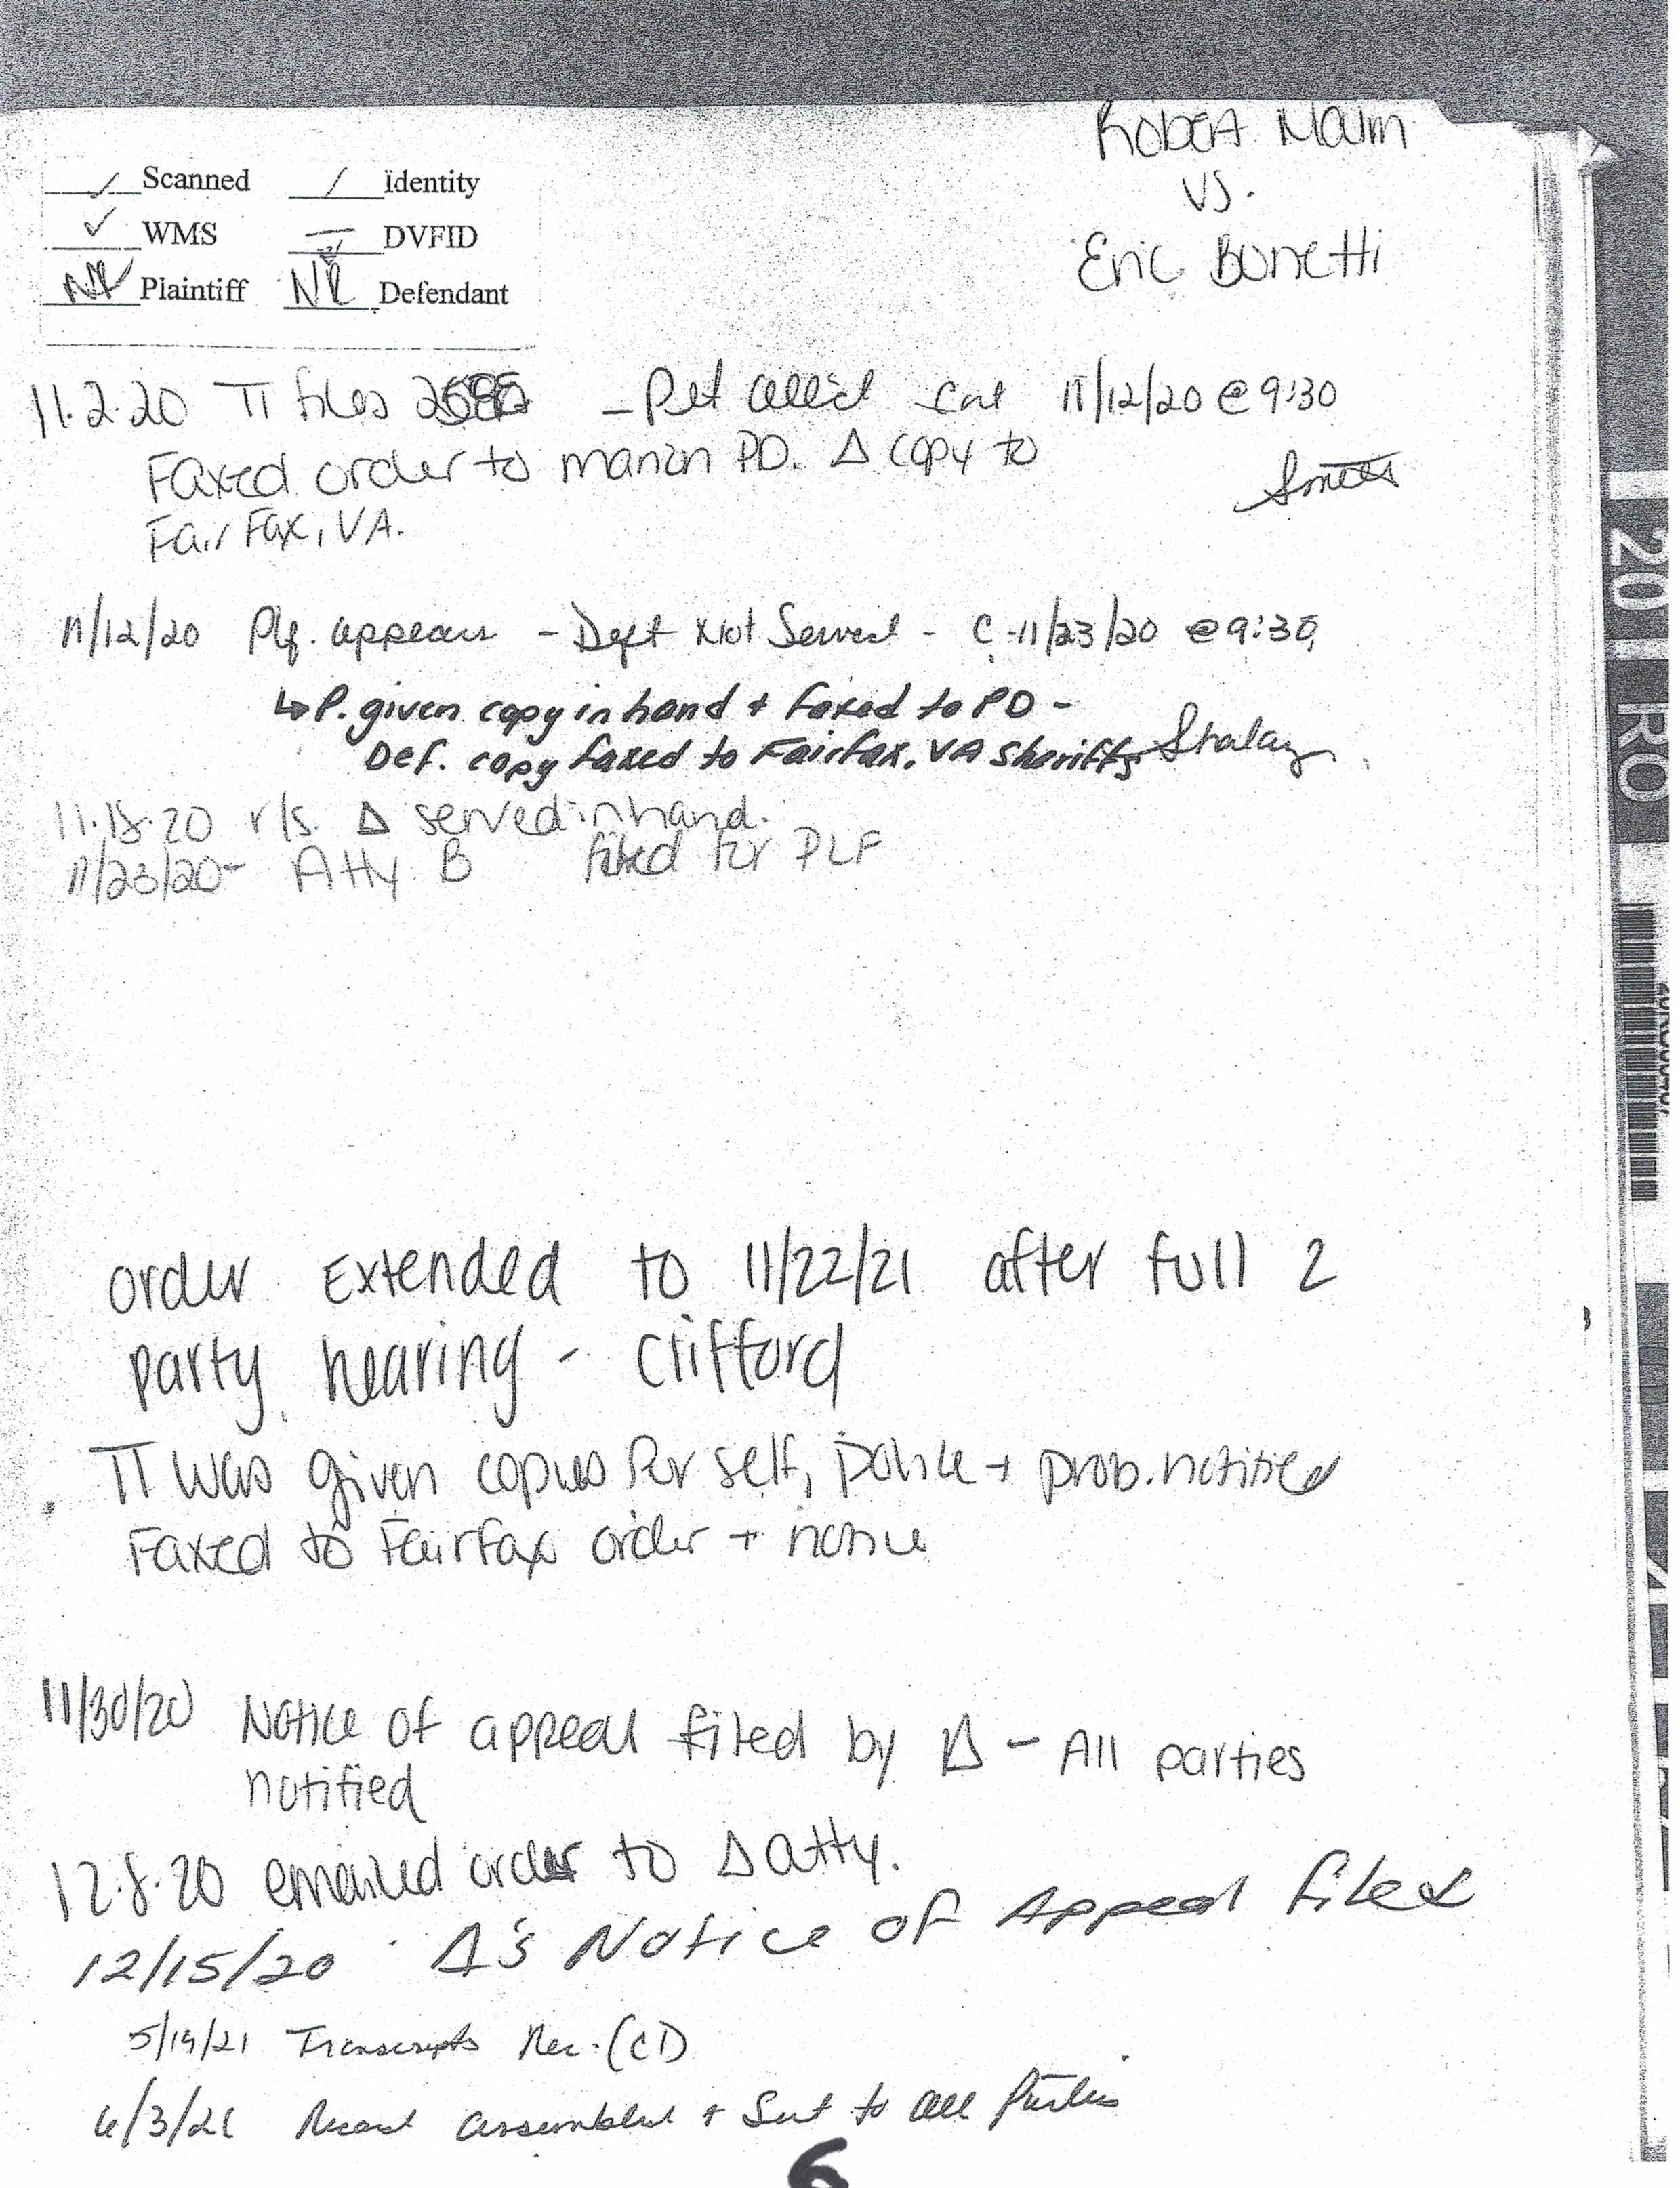 Robert Malm
vs.
Eric Bonetti
Scanned Identity
WMS DVFID
NR Plaintiff NR Defendant
11.2.20 Π files - Pet all'd Cont 11/12/20 @ 9:30
Faxed order to marion PD. Δ copy to
Fairfax, VA.
11/12/20 Plf. appears - Deft Not Served - C 11/23/20 @ 9:30
↳ P. given copy in hand + faxed to PD -
Def. copy faxed to Fairfax, VA Sheriffs
11.18.20 r/s. Δ served in hand.
11/23/20 - Atty B filed for PLF
order Extended to 11/22/21 after full 2
party hearing - Clifford
Π was given copies for self, police + prob. notified
Faxed to Fairfax order + notice
11/30/20 Notice of appeal filed by Δ - All parties
notified
12.8.20 emailed order to Δ atty.
12/15/20 Δ's Notice of Appeal filed
5/19/21 Transcripts Rec. (CD)
6/3/21 Record assembled + Sent to all Parties
6
20
RO